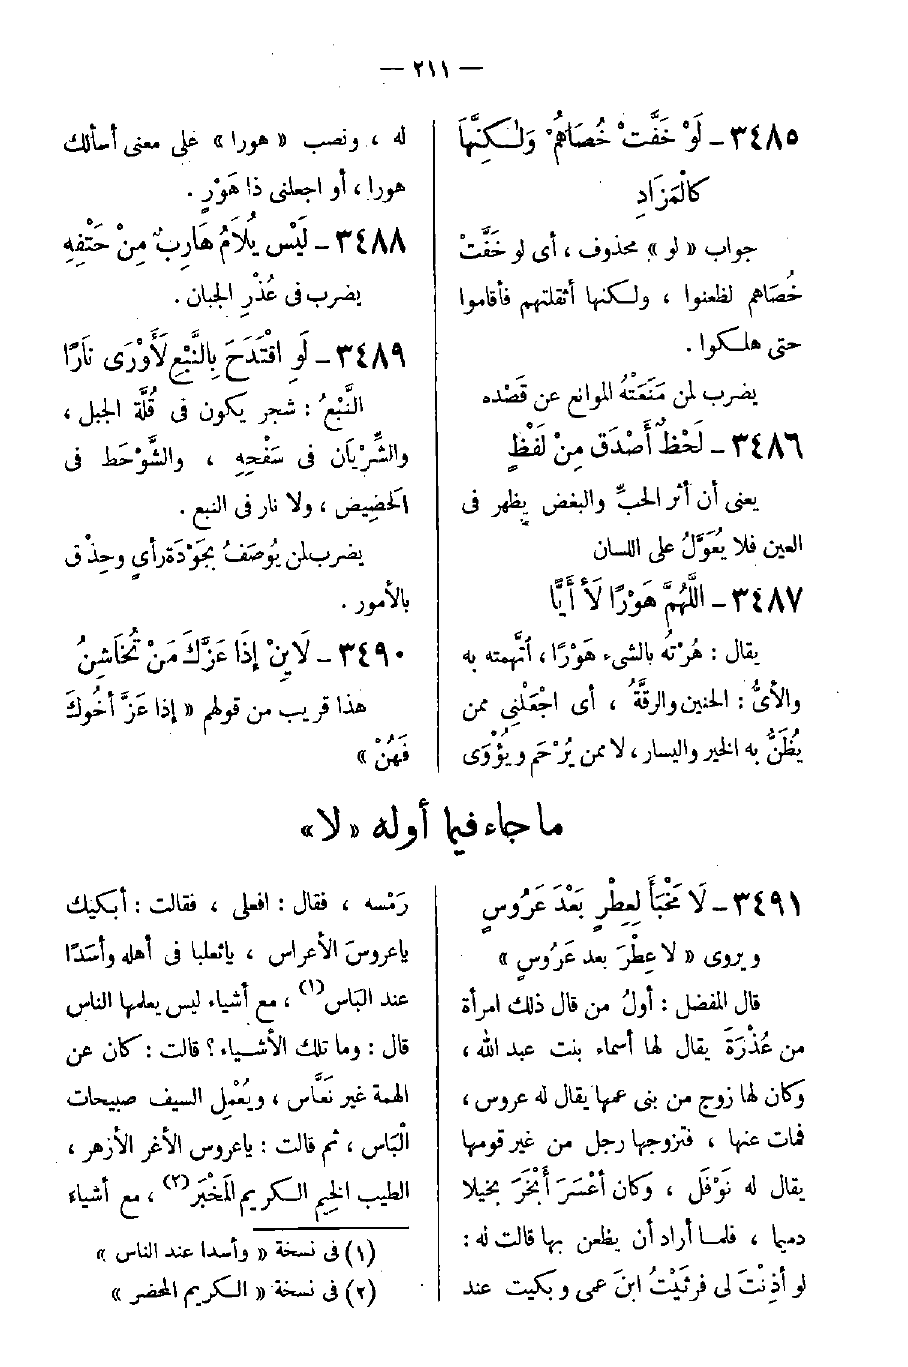 — ٢١١ —
٣٤٨٥ – لَوْ خَفَّتْ خُصَاهُمْ وَلٰكِنَّهَا
كالْمَزَادِ
جواب « لو » محذوف ، أى لو خَفَّتْ
خُصَاهم لظعنوا ، ولكنها أثقلتهم فأقاموا
حتى هلكوا .
يضرب لمن مَنَعَتْهُ الموانع عن قَصْده
٣٤٨٦ – لَحْظٌ أَصْدَق مِنْ لَفْظٍ
يعنى أن أثر الحبِّ والبغض يظهر فى
العين فلا يُعَوَّلُ على اللسان
٣٤٨٧ – اللَّهُمَّ هَوْرًا لاَ أَيًّا
يقال : هُرْتهُ بالشىء هَوْرًا ، اتَّهمته به
والأىُّ : الحنين والرقَّةُ ، أى اجْعَلْنِى ممن
يُظَنُّ به الخير واليسار ، لا ممن يُرْحَم ويُؤْوَى
له ، ونصب « هورا » على معنى أسألك
هورا ، أو اجعلنى ذا هَوْرٍ .
٣٤٨٨ – لَيْس يُلاَمُ هَارِبٌ مِنْ حَتْفِهِ
يضرب فى عُذْرِ الجبان .
٣٤٨٩ – لَوِ اقْتَدَحَ بِالنَّبْعِ لَأَوْرَى نَارًا
النَّبْعُ : شجر يكون فى قُلَّة الجبل ،
والشِّرْيَان فى سَفْحِهِ ، والشَّوْحَط فى
الحَضِيض ، ولا نار فى النبع .
يضرب لمن يُوصَفُ بجَوْدَة رأىٍ وحِذْق
بالأمور .
٣٤٩٠ – لاَيِنْ إِذَا عَزَّكَ مَنْ تُخَاشِنُ
هذا قريب من قولهم « إذا عَزَّ أخُوكَ
فَهُنْ »
ما جاء فيما أوله « لا »
٣٤٩١ – لاَ مَخْبَأَ لِعِطْرٍ بَعْدَ عَرُوسٍ
ويروى « لا عِطْرَ بعد عَرُوسٍ »
قال المفضل : أولُ من قال ذلك امرأة
من عُذْرَةَ يقال لها أسماء بنت عبد الله ،
وكان لها زوج من بنى عمها يقال له عروس ،
فمات عنها ، فتزوجها رجل من غير قومها
يقال له نَوْفَل ، وكان أعْسَرَ أَبْخَرَ بخيلا
دميما ، فلما أراد أن يظعن بها قالت له :
لو أذِنْتَ لى فرثَيْتُ ابنَ عمى وبكيت عند
رَمْسه ، فقال : افعلى ، فقالت : أبكيك
ياعروسَ الأعراس ، ياثعلبا فى أهله وأسَدًا
عند البَاس(١) ، مع أشياء ليس يعلمها الناس
قال : وما تلك الأشياء ؟ قالت : كان عن
الهمة غير نَعَّاس ، ويُعْمِل السيف صبيحات
الْبَاس ، ثم قالت : ياعروس الأغر الأزهر ،
الطيب الخِيم الكريم المَخْبَر(٢) ، مع أشياء
(١) فى نسخة « وأسدا عند الناس »
(٢) فى نسخة « الكريم المحضر »